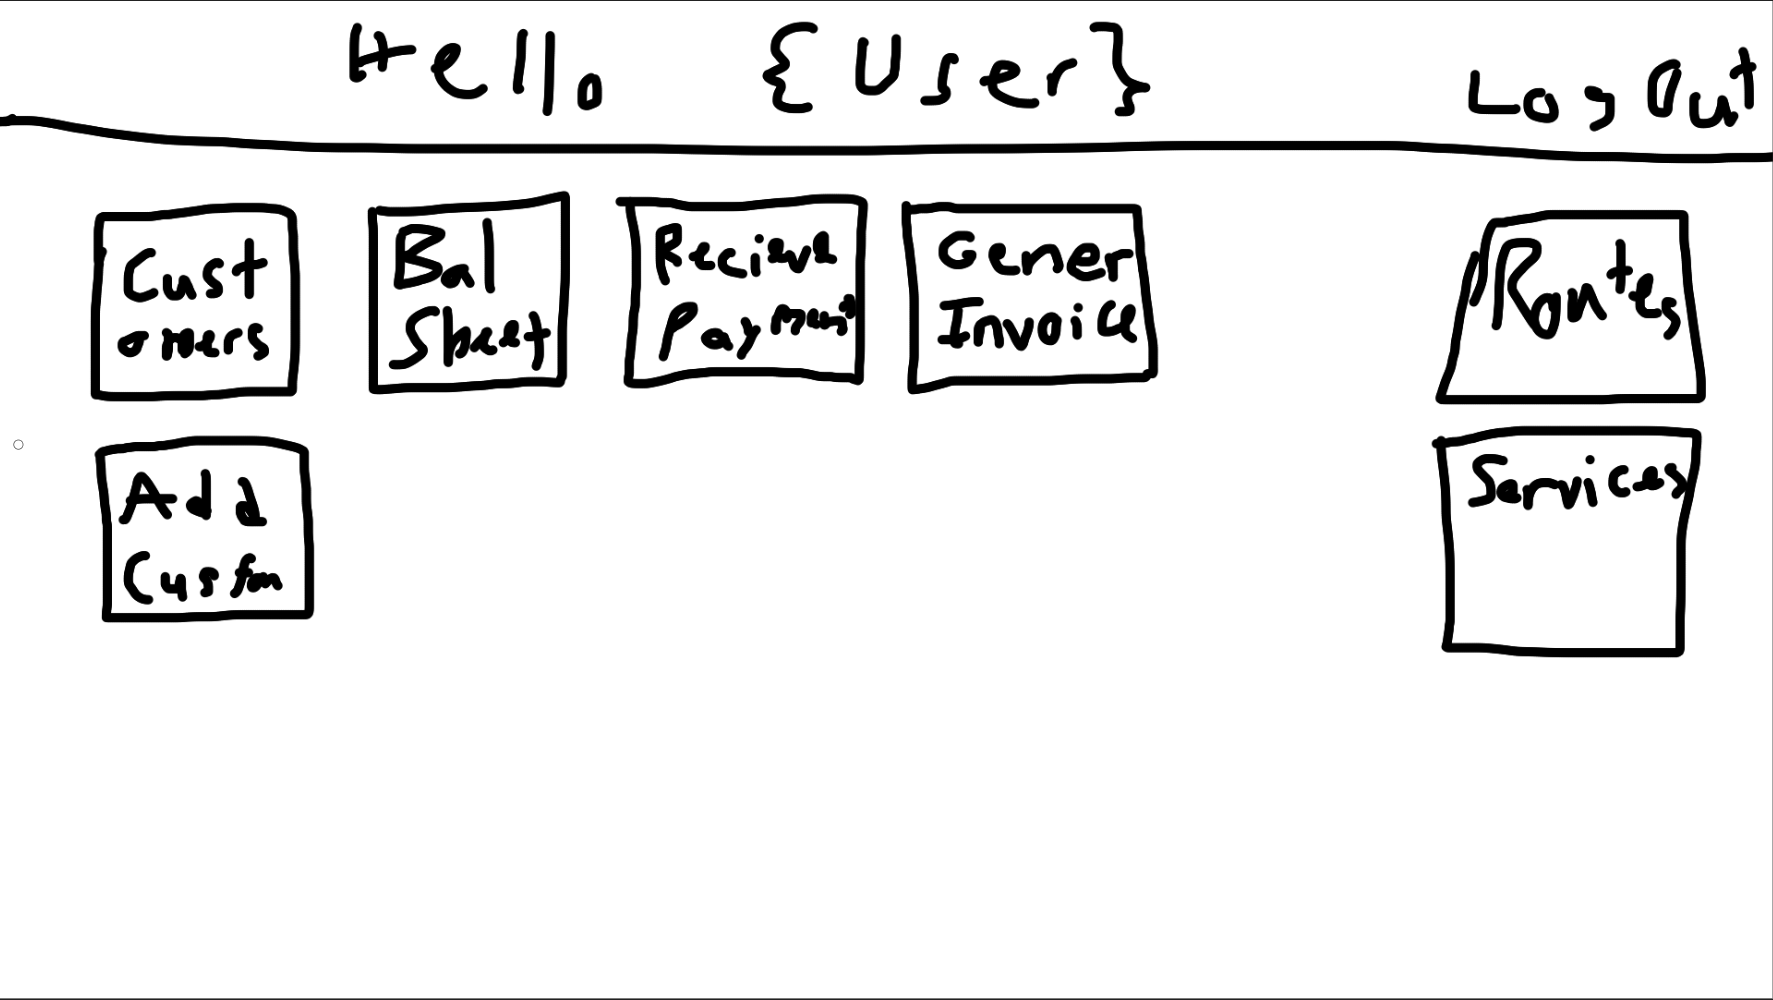 Hello {User}
Log Out
Cust
omers
Bal
Sheet
Recieve
Payment
Gener
Invoice
Routes
Add
Custom
Services